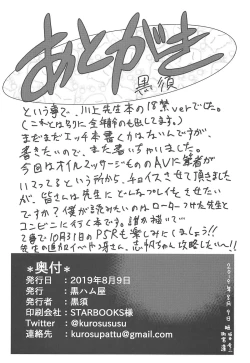 あとがき
黒須
という事で、川上先生本の18禁verでした。
(ニキとは別に全年齢のも出してます。)
まだまだエッチ本書く力はないんですが、
書きたいので、また書いちゃいました。
今回はオイルマッサージもののAVに筆者が
ハマってるという所から、チョイスさせて頂きました
が、皆さんは先生にどんなプレイをさせたい
ですか？僕が今読みたいのはローターつけた先生と
コンビニに行く本です。誰か描いて♡
て事で10月31日のP5Rも楽しみにしましょう!!
*奥付*
発行日 : 2019年8月9日
発行 : 黒ハム屋
発行者 : 黒須
印刷会社 : STARBOOKS様
Twitter : @kurosususu
連絡先 : kurosupattu@gmail.com